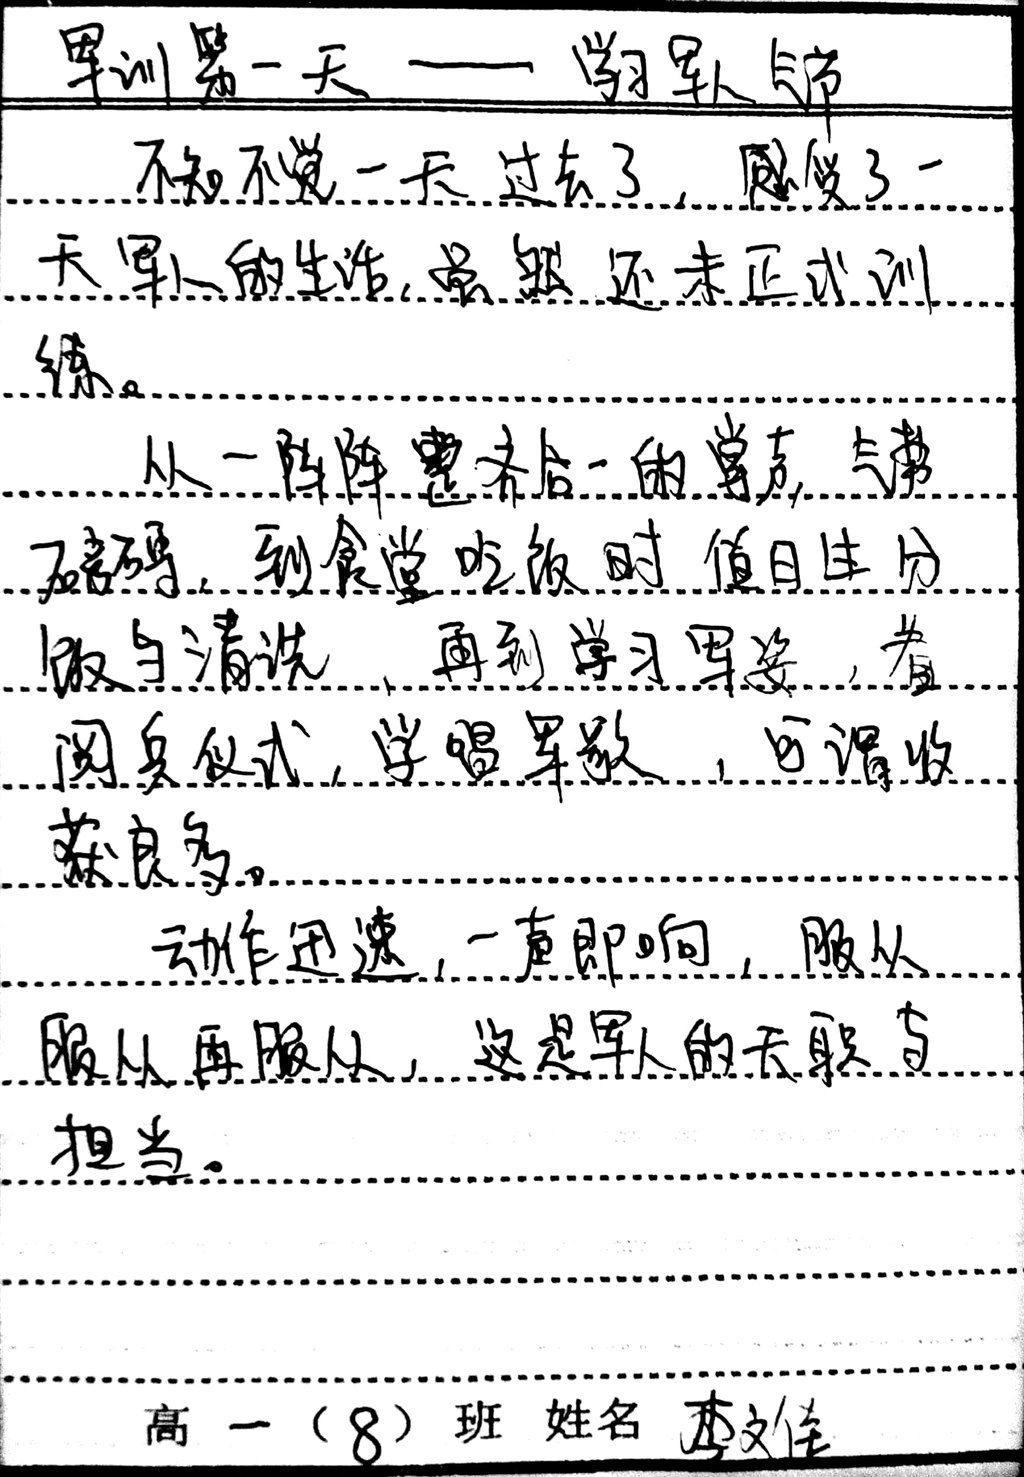 军训第一天——学习军人气节
不知不觉一天过去了，感受了一
天军人的生活，虽然还未正式训
练。
从一阵阵整齐合一的掌声，气势
磅礴，到食堂吃饭时值日生分
饭与清洗，再到学习军姿，看
阅兵仪式，学唱军歌，可谓收
获良多。
动作迅速，一声即响，服从
服从再服从，这是军人的天职与
担当。
高一（8）班 姓名 李文佳